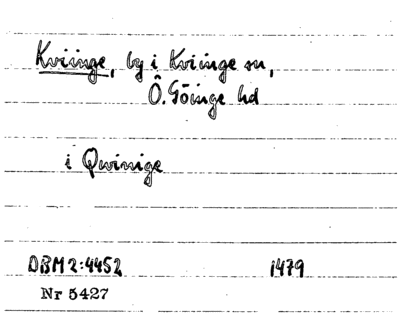 Kviinge, by i Kviinge sn,
Ö. Göinge hd
i Qwinige
DBM 2:4452 1479
Nr 5427